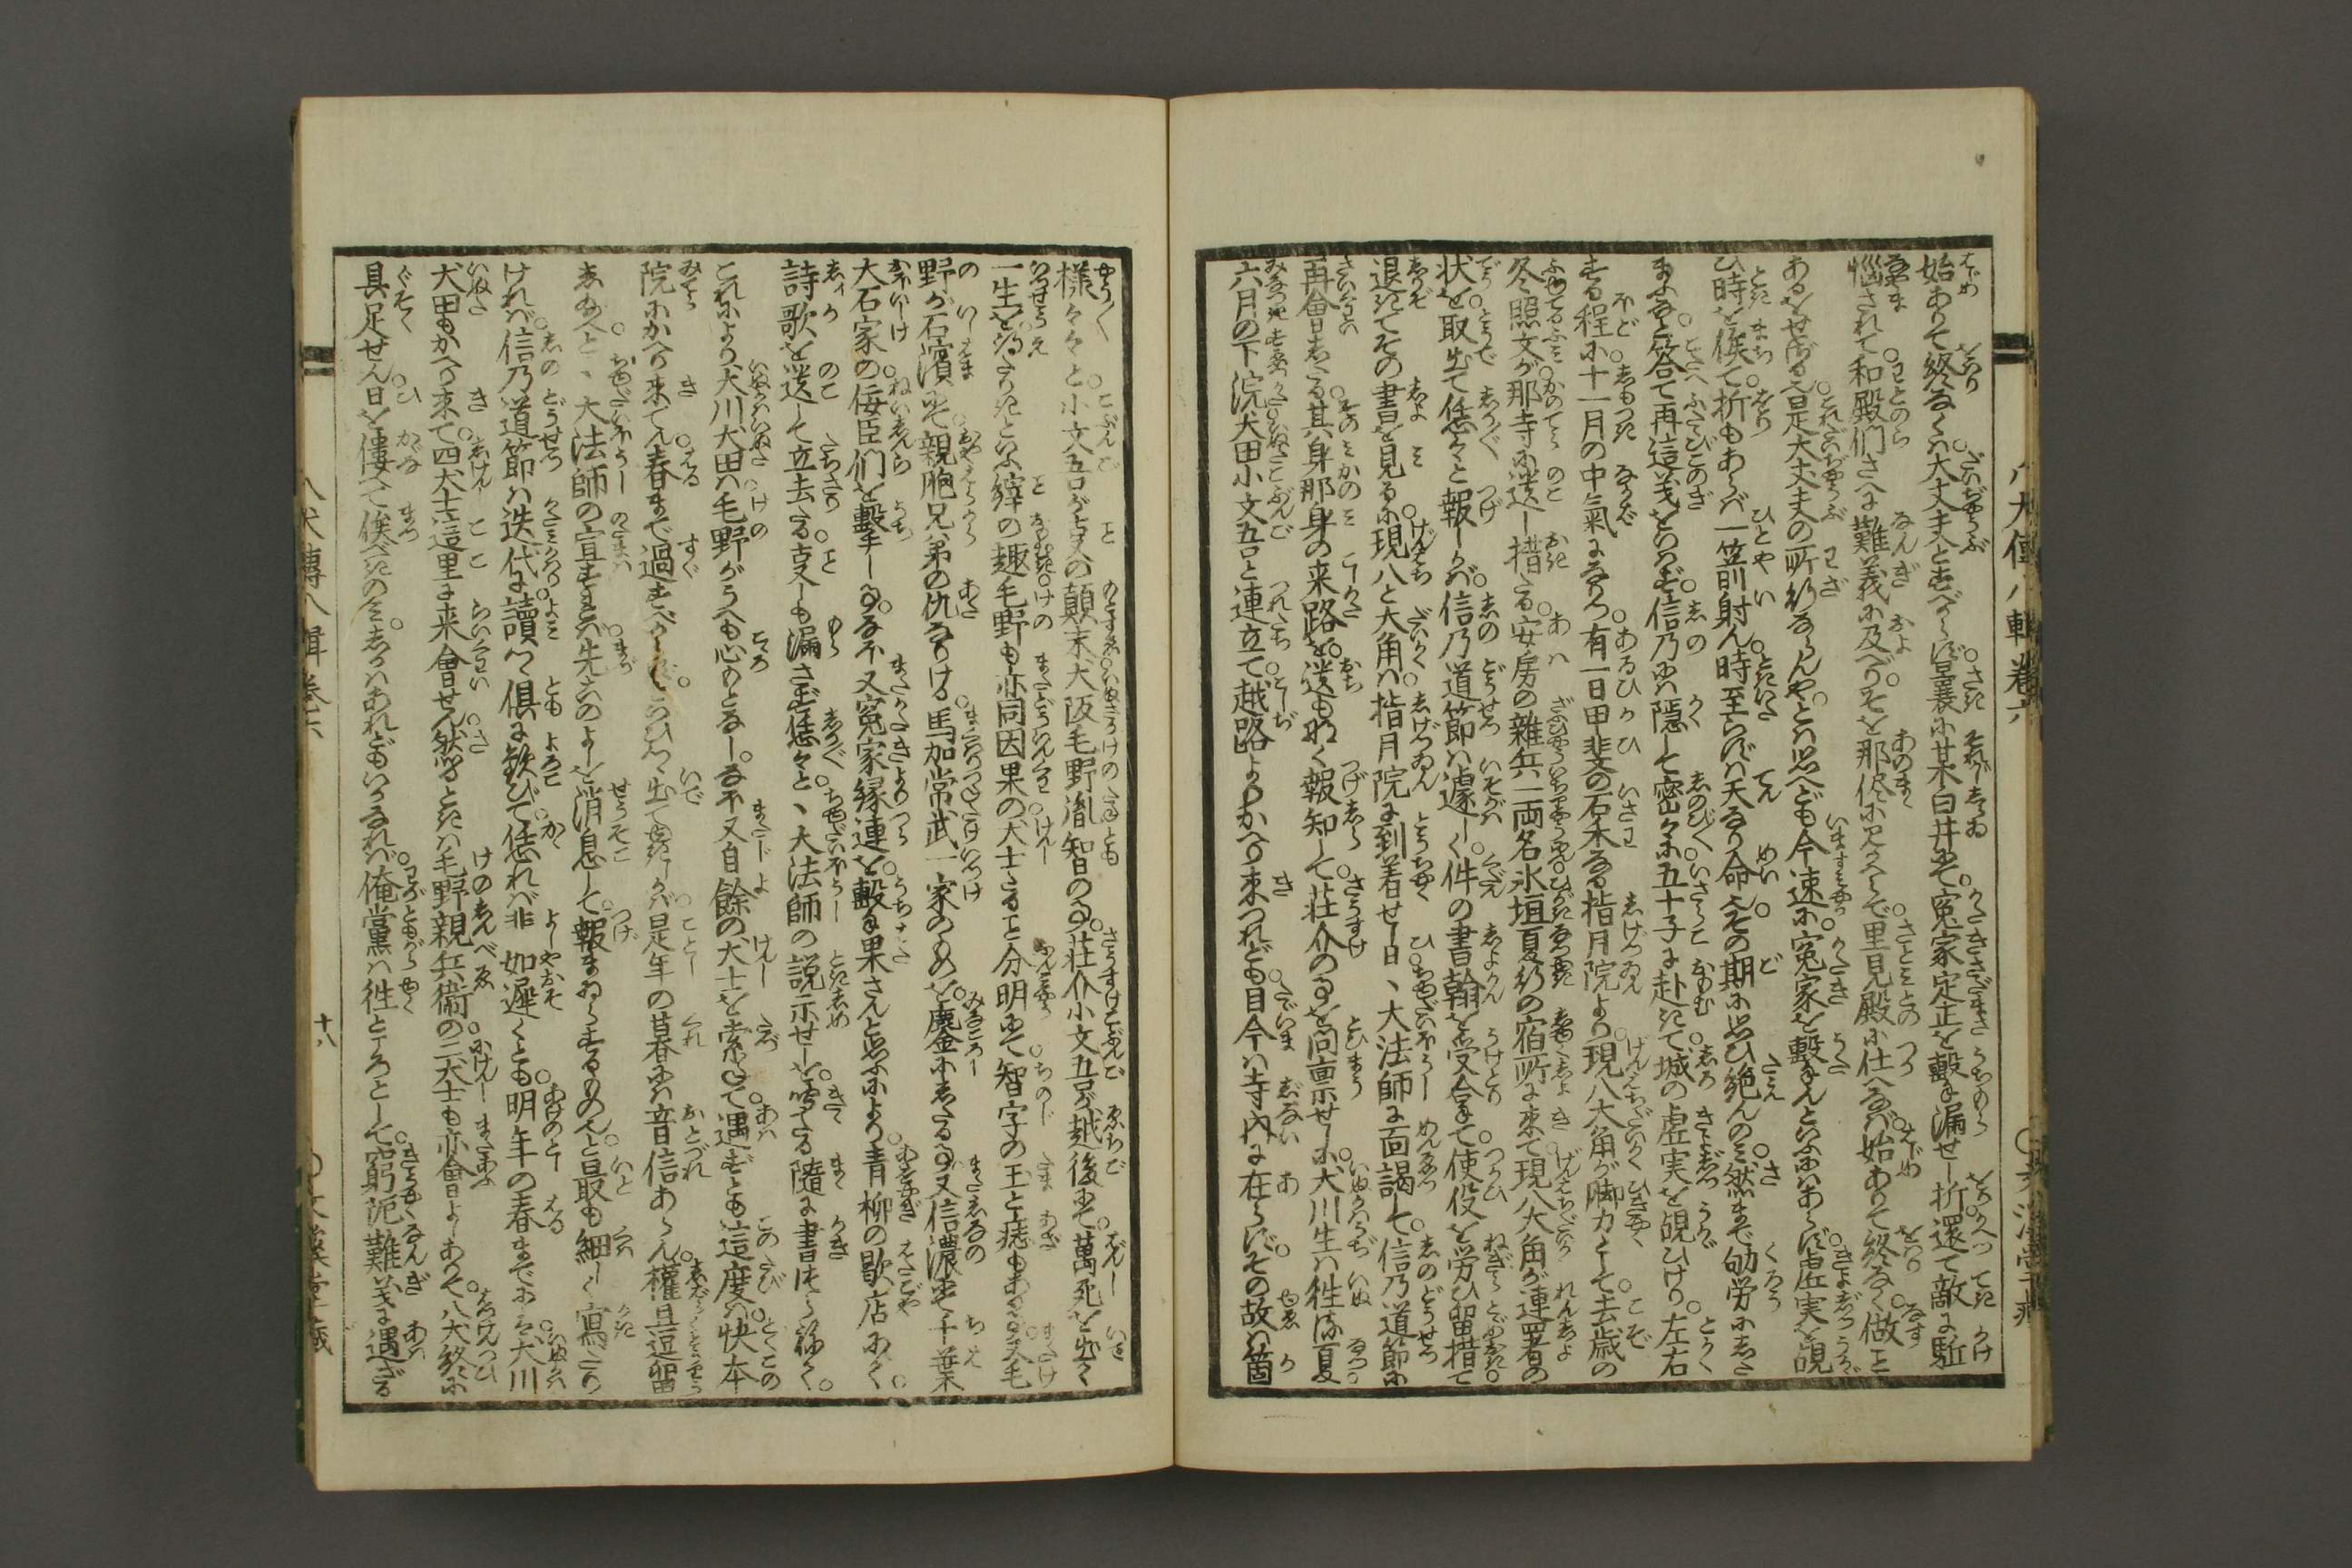 始ありて終なくは大丈夫とすべからず曩に某白井にて寃家定正を撃漏せし折還て敵に駈
惱されて和殿們さへに難義に及べりそを那侭に見かへらで里見殿に仕へなば始ありて終なく做ことあるをせざる是大丈夫の所行ならんやとは思へども今速に寃家を撃んといふにはあらず虚実を覘
ひ時を俟て折もあらば一箭射ん時至らずは天なり命なりその期に思ひ絶んのみ然まで劬労にした
まふなと答て再這義をいはず信乃には隠して密々に五十子に赴きて城の虚実を覘ひけり左右
する程に十一月の中氣になりつ有一日甲斐の石禾なる指月院より現八大角が脚力として去歳の
冬照文が那寺に遺し措たる安房の雜兵一両名氷垣夏行の宿所に来て現八大角が連署の
状を取出て恁々と報しかば信乃道節は遽しく件の書翰を受合て使役を労ひ留措て
退きてその書を見るに現八と大角は指月院に到着せし日丶大法師に面謁して信乃道節に
再會したる其身那身の来路を遺もなく報知して荘介の事を問禀せしに犬川生は徃ぬる夏
六月の下浣犬田小文五と連立て越路よりかへり来つれども目今は寺内に在らずその故は箇
様々々と小文五が事の顛末犬阪毛野胤智の事荘介小文五が越後にて萬死を出て
一生を得たりきといふ縡の趣毛野も亦同因果の犬士たること分明にて智字の玉と痣もある事又毛
野が石濱にて親胞兄弟の仇なりける馬加常武一家のものを鏖にしたる事又信濃にて千葉
大石家の佞臣們を撃し事なほ又寃家縁連を撃も果さんと思ふにより青柳の歇店にかく
詩歌を遺して立去たる事しも漏さず恁々と丶大法師の説示せしを聴たる隨に書つらねたる
これにより犬川犬田は毛野がうへも心のとなしなほ又自餘の犬士を索ねて遇ずとも這度は快本
院にかへり来てん春まで過すべからずといひつゝ出て去きしが是年の暮には音信あらん權且逗留
したまへと丶大法師の宣するは先六のよしを消息して報まゐらするものなりと最も細しく寫たり
ければ信乃道節は迭代に讀つゝ倶に歓びて恁れば非如遲くとも明年の春までには犬川
犬田もかへり来て四犬士這里に来會せん然るときは毛野親兵衛の二犬士も亦會よしありて八犬終に
具足せん日を僂て俟べきのみしかはあれどもいかなれば俺黨は徃ところとして窮阨難義に遇ざる
八犬傳八輯巻六
十八